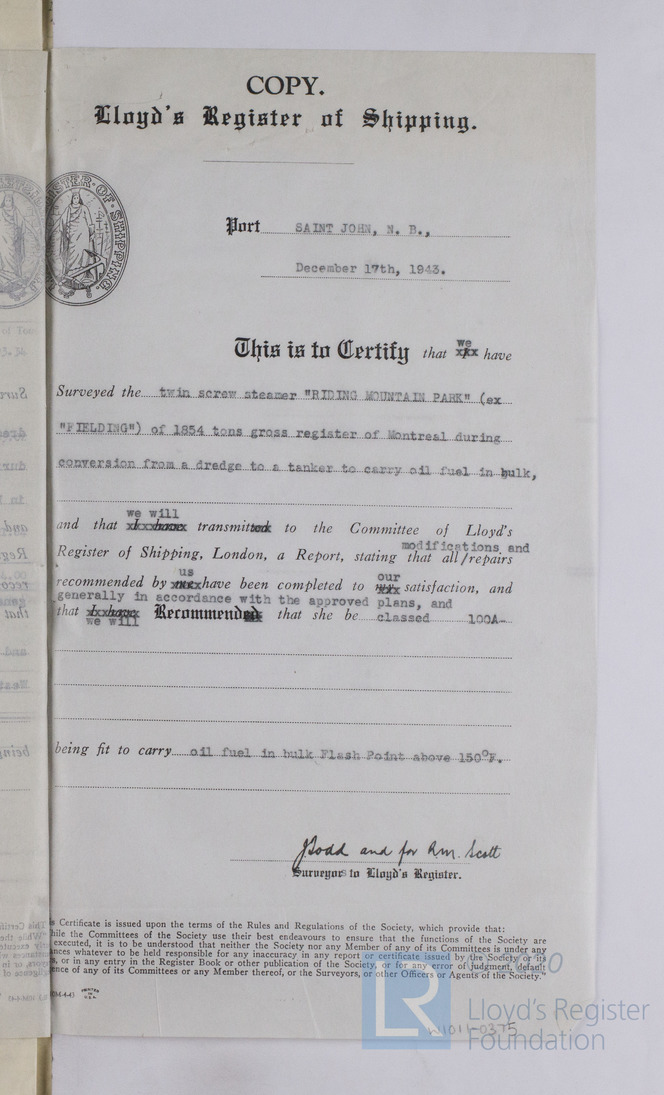 COPY.
Lloyd's Register of Shipping.
Port SAINT JOHN, N. B.,
December 17th, 1943.
This is to Certify that we have
Surveyed the twin screw steamer "RIDING MOUNTAIN PARK" (ex
"FIELDING") of 1854 tons gross register of Montreal during
conversion from a dredge to a tanker to carry oil fuel in bulk,
we will
and that transmit to the Committee of Lloyd's
modifications and
Register of Shipping, London, a Report, stating that all/repairs
us our
recommended by have been completed to satisfaction, and
generally in accordance with the approved plans, and
that Recommend that she be classed 100A
we will
being fit to carry oil fuel in bulk Flash Point above 150°F.
J Dodd and for R.M. Scott
Surveyors to Lloyd's Register.
Certificate is issued upon the terms of the Rules and Regulations of the Society, which provide that:
hile the Committees of the Society use their best endeavours to ensure that the functions of the Society are
executed, it is to be understood that neither the Society nor any Member of any of its Committees is under any
nces whatever to be held responsible for any inaccuracy in any report or certificate issued by the Society or its
, or in any entry in the Register Book or other publication of the Society, or for any error of judgment, default
ence of any of its Committees or any Member thereof, or the Surveyors, or other Officers or Agents of the Society."
PRINTED IN U.S.A.
W1011-0375
LR Lloyd's Register
Foundation